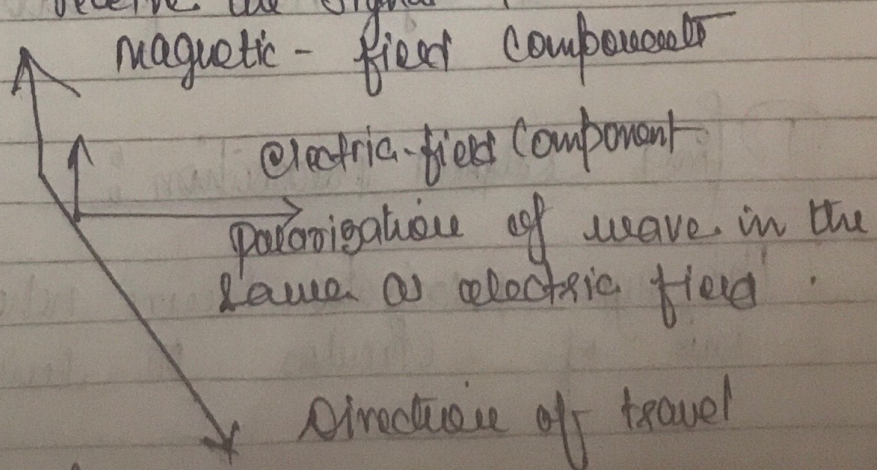 receive the signal
Magnetic - field Components
electric-field Component
polarization of wave in the
same as electric field .
Direction of travel